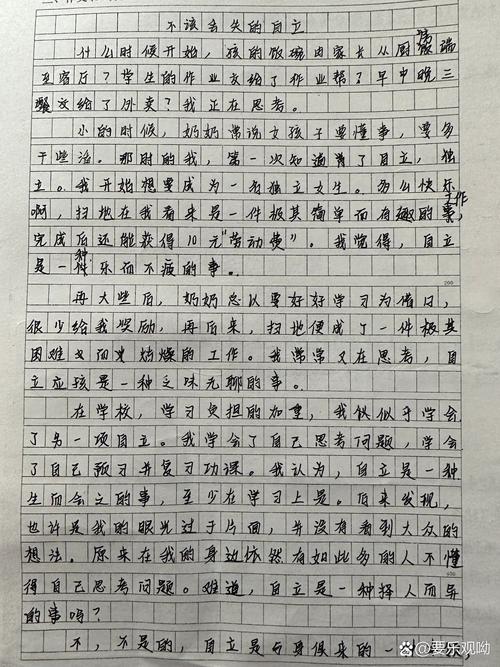 不该丢失的自立
什么时候开始，孩的饭碗由家长从厨房端
至客厅？学生的作业交给了作业帮？早中晚三
餐交给了外卖？我正在思考。
小的时候，奶奶常说女孩子要懂事，要多
干些活。那时的我，第一次知道有了自立，独
立。我开始想要成为一名独立女生。多么快乐
啊，扫地在我看来是一件极其简单而有趣的工作，
完成后还能获得10元“劳动费”。我觉得，自立
是一种乐而不疲的事。
200
再大些后，奶奶总以要好好学习为借口，
很少给我奖励，再后来，扫地便成了一件极其
困难又而又烦燥的工作。我常常又在思考，自
立应该是一种乏味无聊的事。
在学校，学习负担的加重，我似似乎学会
了另一项自立。我学会了自己思考问题，学会
了自己预习并复习功课。我认为，自立是一种
生而会之的事，至少在学习上是。后来发现，
也许是我的眼光过于片面，并没有看到大众的
想法。原来在我的身边依然有如此多的人不懂
400
得自己思考问题。难道，自立是一种择人而异
的事吗？
不，不是的，自立是与身俱来的一
百家号/要乐观呦